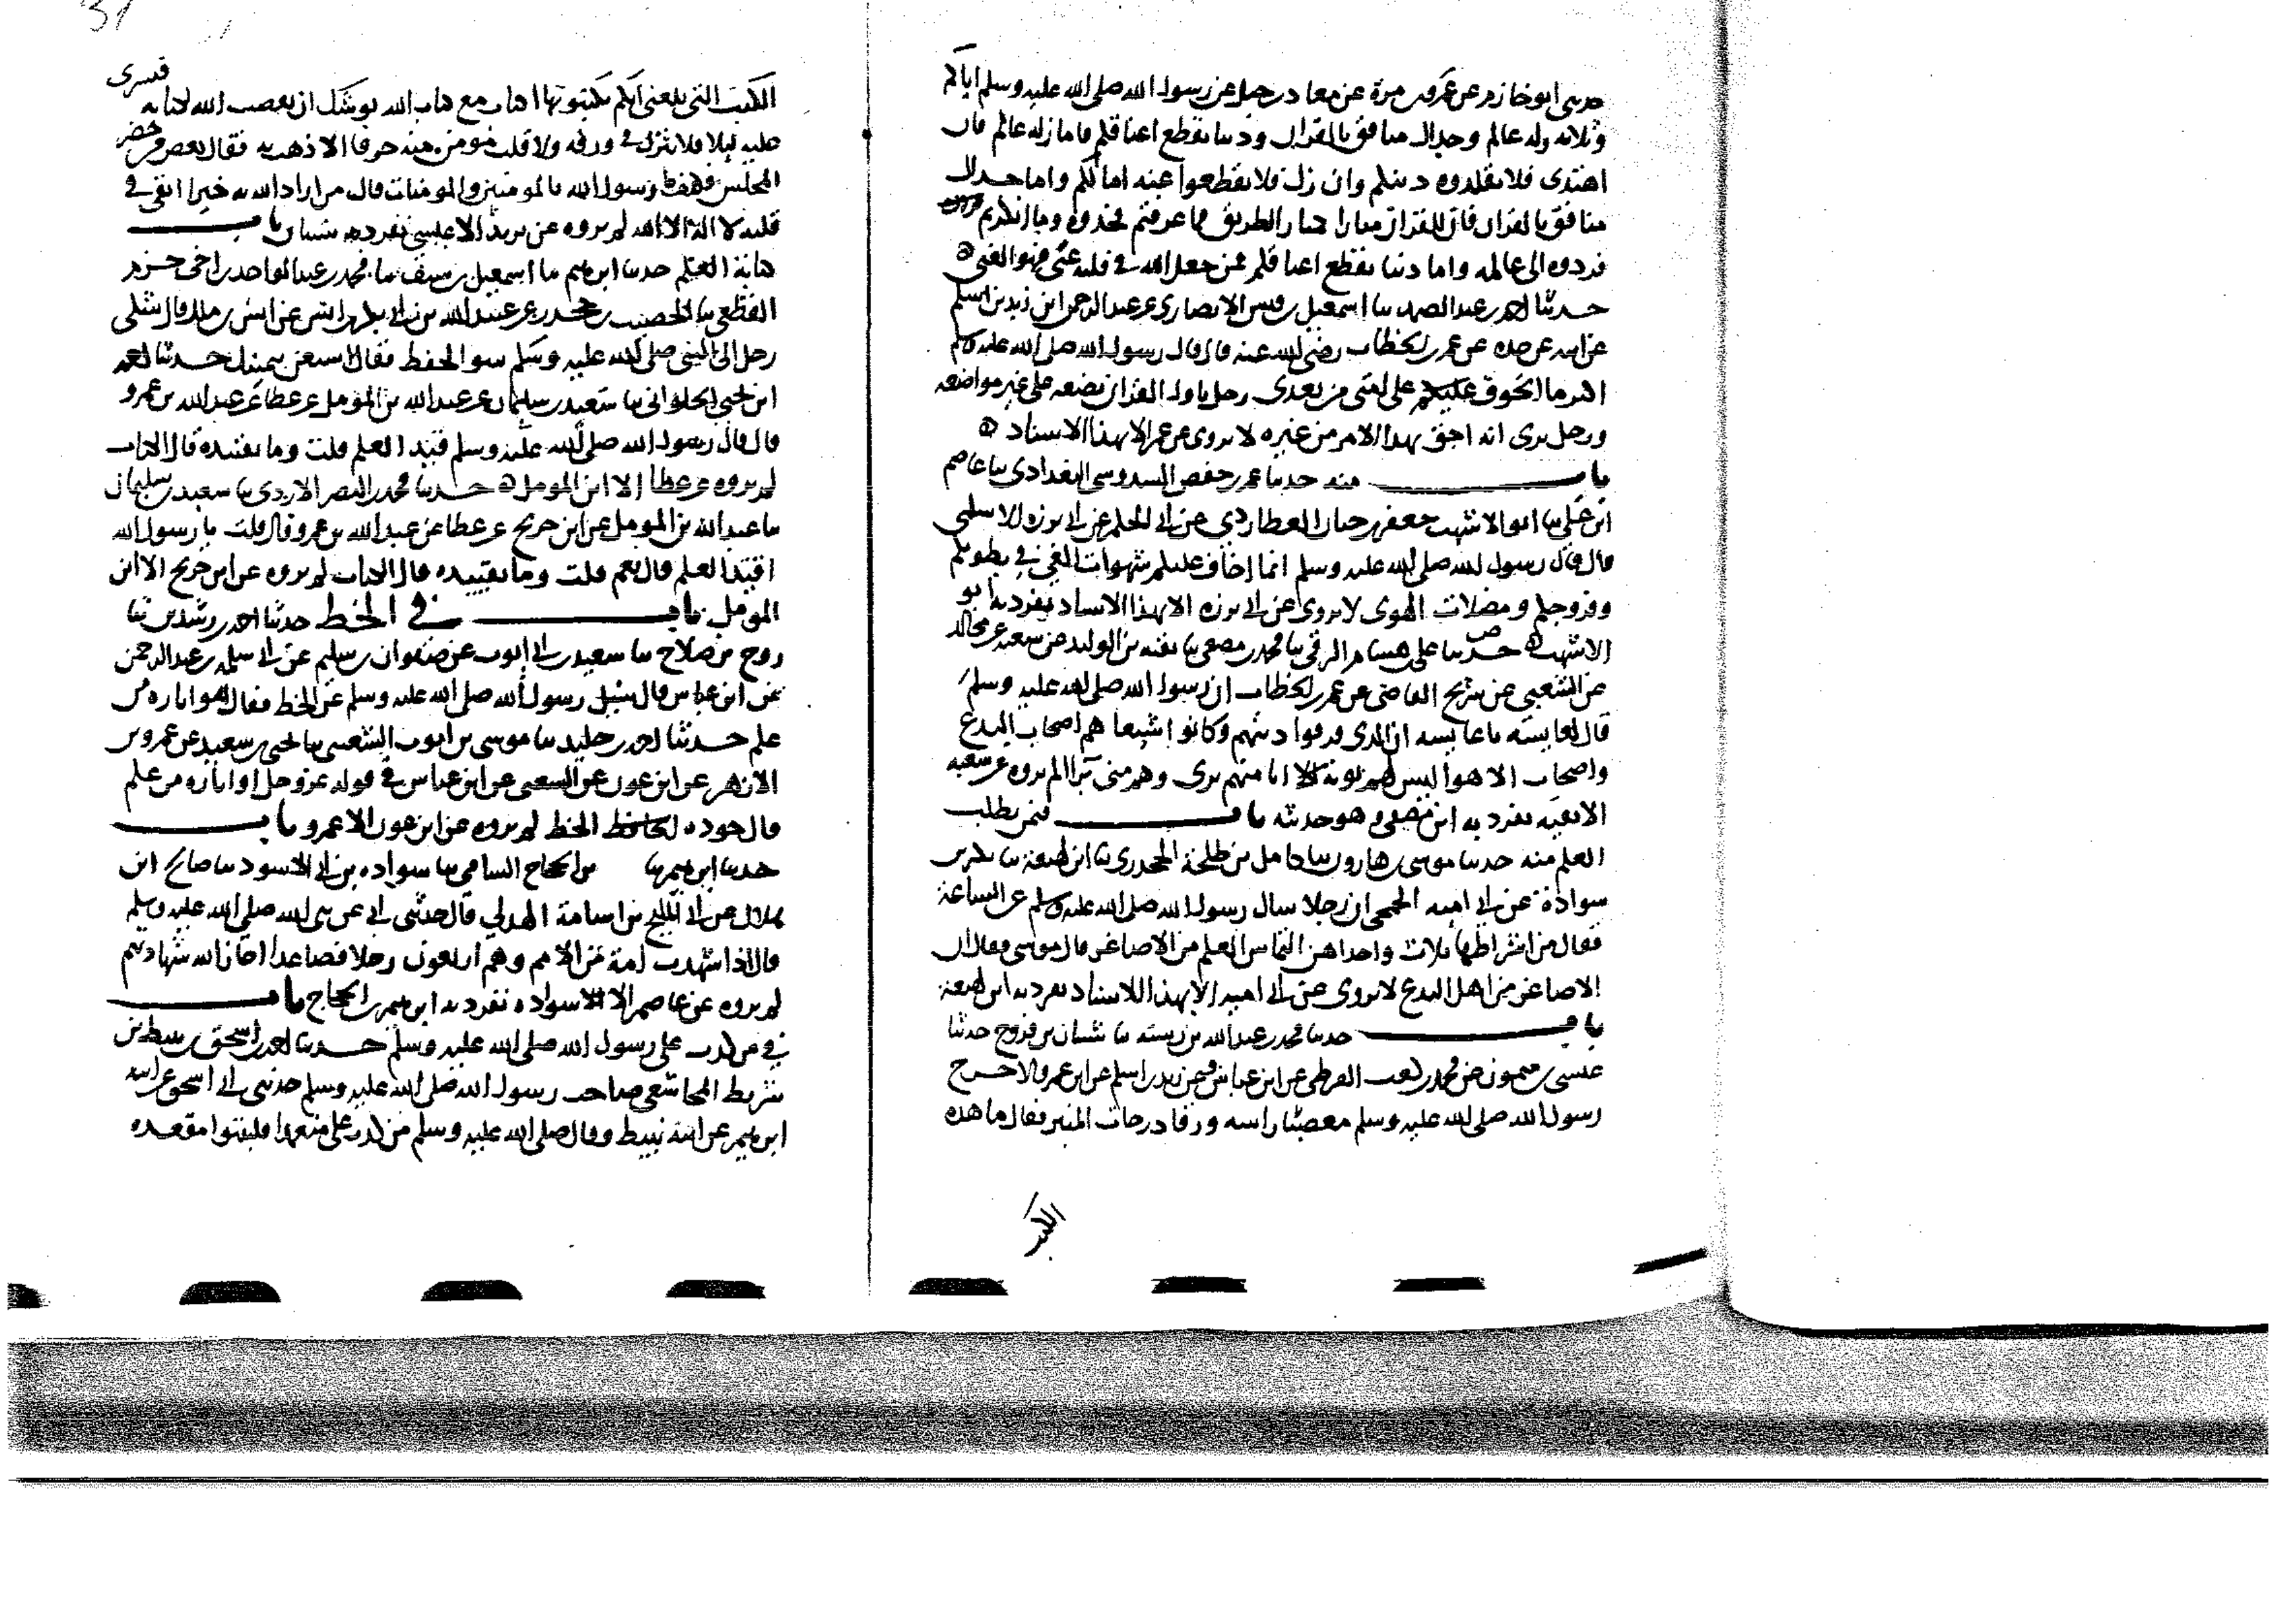 حدثني ابو حازم عن عمرو بن مرة عن معاذ بن جبل عن رسول الله صلى الله عليه وسلم اياكم
وثلاثه زله عالم وجدال منافق بالقران ودنيا تقطع اعناقكم فاما زله عالم فان
اهتدى فلا تقلدوه دينكم وان زل فلا تقطعوا عنه امالكم واما جدال
منافق بالقران فان للقران منارا كمنار الطريق فما عرفتم فخذوه وما انكرتم
فردوه الى عالمه واما دنيا تقطع اعناقكم فمن جعل الله في قلبه غنى فهو الغني
حدثنا احمد بن عبد الصمد نا اسمعيل بن قيس الانصاري عن عبد الرحمن ابن زيد بن اسلم
عن ابيه عن جده عن عمر بن الخطاب رضى الله عنه قال قال رسول الله صلى الله عليه وسلم
اكثر ما اتخوف عليكم على امتى من بعدى رجل ياول القران يضعه على غير مواضعه
ورجل يرى انه احق بهذا الامر من غيره لا يروى عن عمر الا بهذا الاسناد
باب منه حدثنا عمر بن حفص السدوسى البغدادى نا عاصم
ابن على نا ابو الاشهب جعفر بن حيان العطاردي عن ابي الحكم عن ابي برزه الاسلمى
قال قال رسول الله صلى الله عليه وسلم انما اخاف عليكم شهوات الغي في بطونكم
وفروجكم ومضلات الهوى لا يروى عن ابي برزه الا بهذا الاسناد تفرد به ابو
الاشهب حدثنا على بن هشام الرقي نا محمد بن مصفى نا بقيه بن الوليد عن شعبه عن مجالد
عن الشعبى عن شريح القاضى عن عمر بن الخطاب ان رسول الله صلى الله عليه وسلم
قال لعايشه يا عايشه ان الذى فرقوا دينهم وكانوا شيعا هم اصحاب البدع
واصحاب الاهوا ليس لهم توبه انا منهم برى وهم منى برا لم يروه عن شعبه
الا بقيه تفرد به ابن مصفى وهو حديثه باب فيمن يطلب
العلم منه حدثنا موسى بن هارون نا كامل بن طلحة الجحدرى نا ابن لهيعة نا بكر بن
سوادة عن ابي اميه الجمحى ان رجلا سال رسول الله صلى الله عليه وسلم عن الساعة
فقال من اشراطها ثلاث واحداهن التماس العلم من الاصاغر قال موسى يقال ان
الاصاغر من اهل البدع لا يروى عن ابي اميه الا بهذا الاسناد تفرد به ابن لهيعة
باب حدثنا محمد بن عبد الله بن رسته نا شيبان بن فروخ حدثنا
عيسى بن ميمون عن محمد بن كعب القرظى عن ابن عباس وعن زيد بن اسلم عن ابن عمر قالا خرج
رسول الله صلى الله عليه وسلم معصبا راسه ورقا درجات المنبر فقال ما هذه
الكتب
الكتب التى بلغنى انكم تكتبونها اكتاب مع كتاب الله يوشك ان يغضب الله لكتابه فيسرى
عليه ليلا فلا يترك في ورقه ولا قلب مومن منه حرفا الا ذهب به فقال بعض من حضر
المجلس فكيف يا رسول الله بالمومنين والمومنات قال من اراد الله به خيرا ابقى في
قلبه لا اله الا الله لم يروه عن الا عيسى تفرد به شيبان باب
كتابة العلم حدثنا ابرهيم نا اسمعيل بن سيف نا محمد بن عبد الواحد اخى حزم
القطعي نا الخصيب بن جحدر عن عبيد الله بن ابي بكر بن انس عن انس بن مالك قال شكى
رجل الى النبى صلى الله عليه وسلم سو الحفظ فقال استعن بيمينك حدثنا احمد
ابن يحيى الحلوانى نا سعيد بن سليمان عن عبد الله بن المومل عن عطا عن عبد الله بن عمرو
قال قال رسول الله صلى الله عليه وسلم قيد العلم قلت وما تقييده قال الكتاب
لم يروه عن عطا الا ابن المومل حدثنا محمد بن النضر الازدى نا سعيد بن سليمان
نا عبد الله بن المومل عن ابن جريج عن عطا عن عبد الله بن عمرو قال قلت يا رسول الله
اقيد العلم قال نعم قلت وما تقييده قال الكتاب لم يروه عن ابن جريج الا ابن
المومل باب في الخط حدثنا احمد بن رشدين نا
روح بن صلاح نا سعيد بن ابي ايوب عن صفوان بن سليم عن ابي سلمه بن عبد الرحمن
عن ابن عباس قال سئل رسول الله صلى الله عليه وسلم عن الخط فقال هو اثاره من
علم حدثنا احمد بن خليد نا موسى بن ايوب النصيبى نا يحيى بن سعيد عن عمرو بن
الازهر عن ابن عون عن الشعبى عن ابن عباس في قوله عز وجل او اثاره من علم
قال جوده الخط لم يروه عن ابن عون الا عمرو باب
حدثنا ابرهيم نا بن الحجاج السامى نا سواده بن ابي الاسود نا صالح ابن
هلال عن ابي المليح بن اسامة الهذلي قال حدثنى ابي عن نبى الله صلى الله عليه وسلم
قال اذا شهدت امة من الامم وهم اربعون رجلا فصاعدا اجاز الله شهادتهم
لم يروه عن الا سواده تفرد به ابرهيم بن الحجاج باب
في من كذب على رسول الله صلى الله عليه وسلم حدثنا احمد بن اسحق بن
شريط الاشجعى صاحب رسول الله صلى الله عليه وسلم حدثنى ابي اسحق عن ابيه
ابرهيم عن ابيه نبيط وقال صلى الله عليه وسلم من كذب على متعمدا فليتبوا مقعده